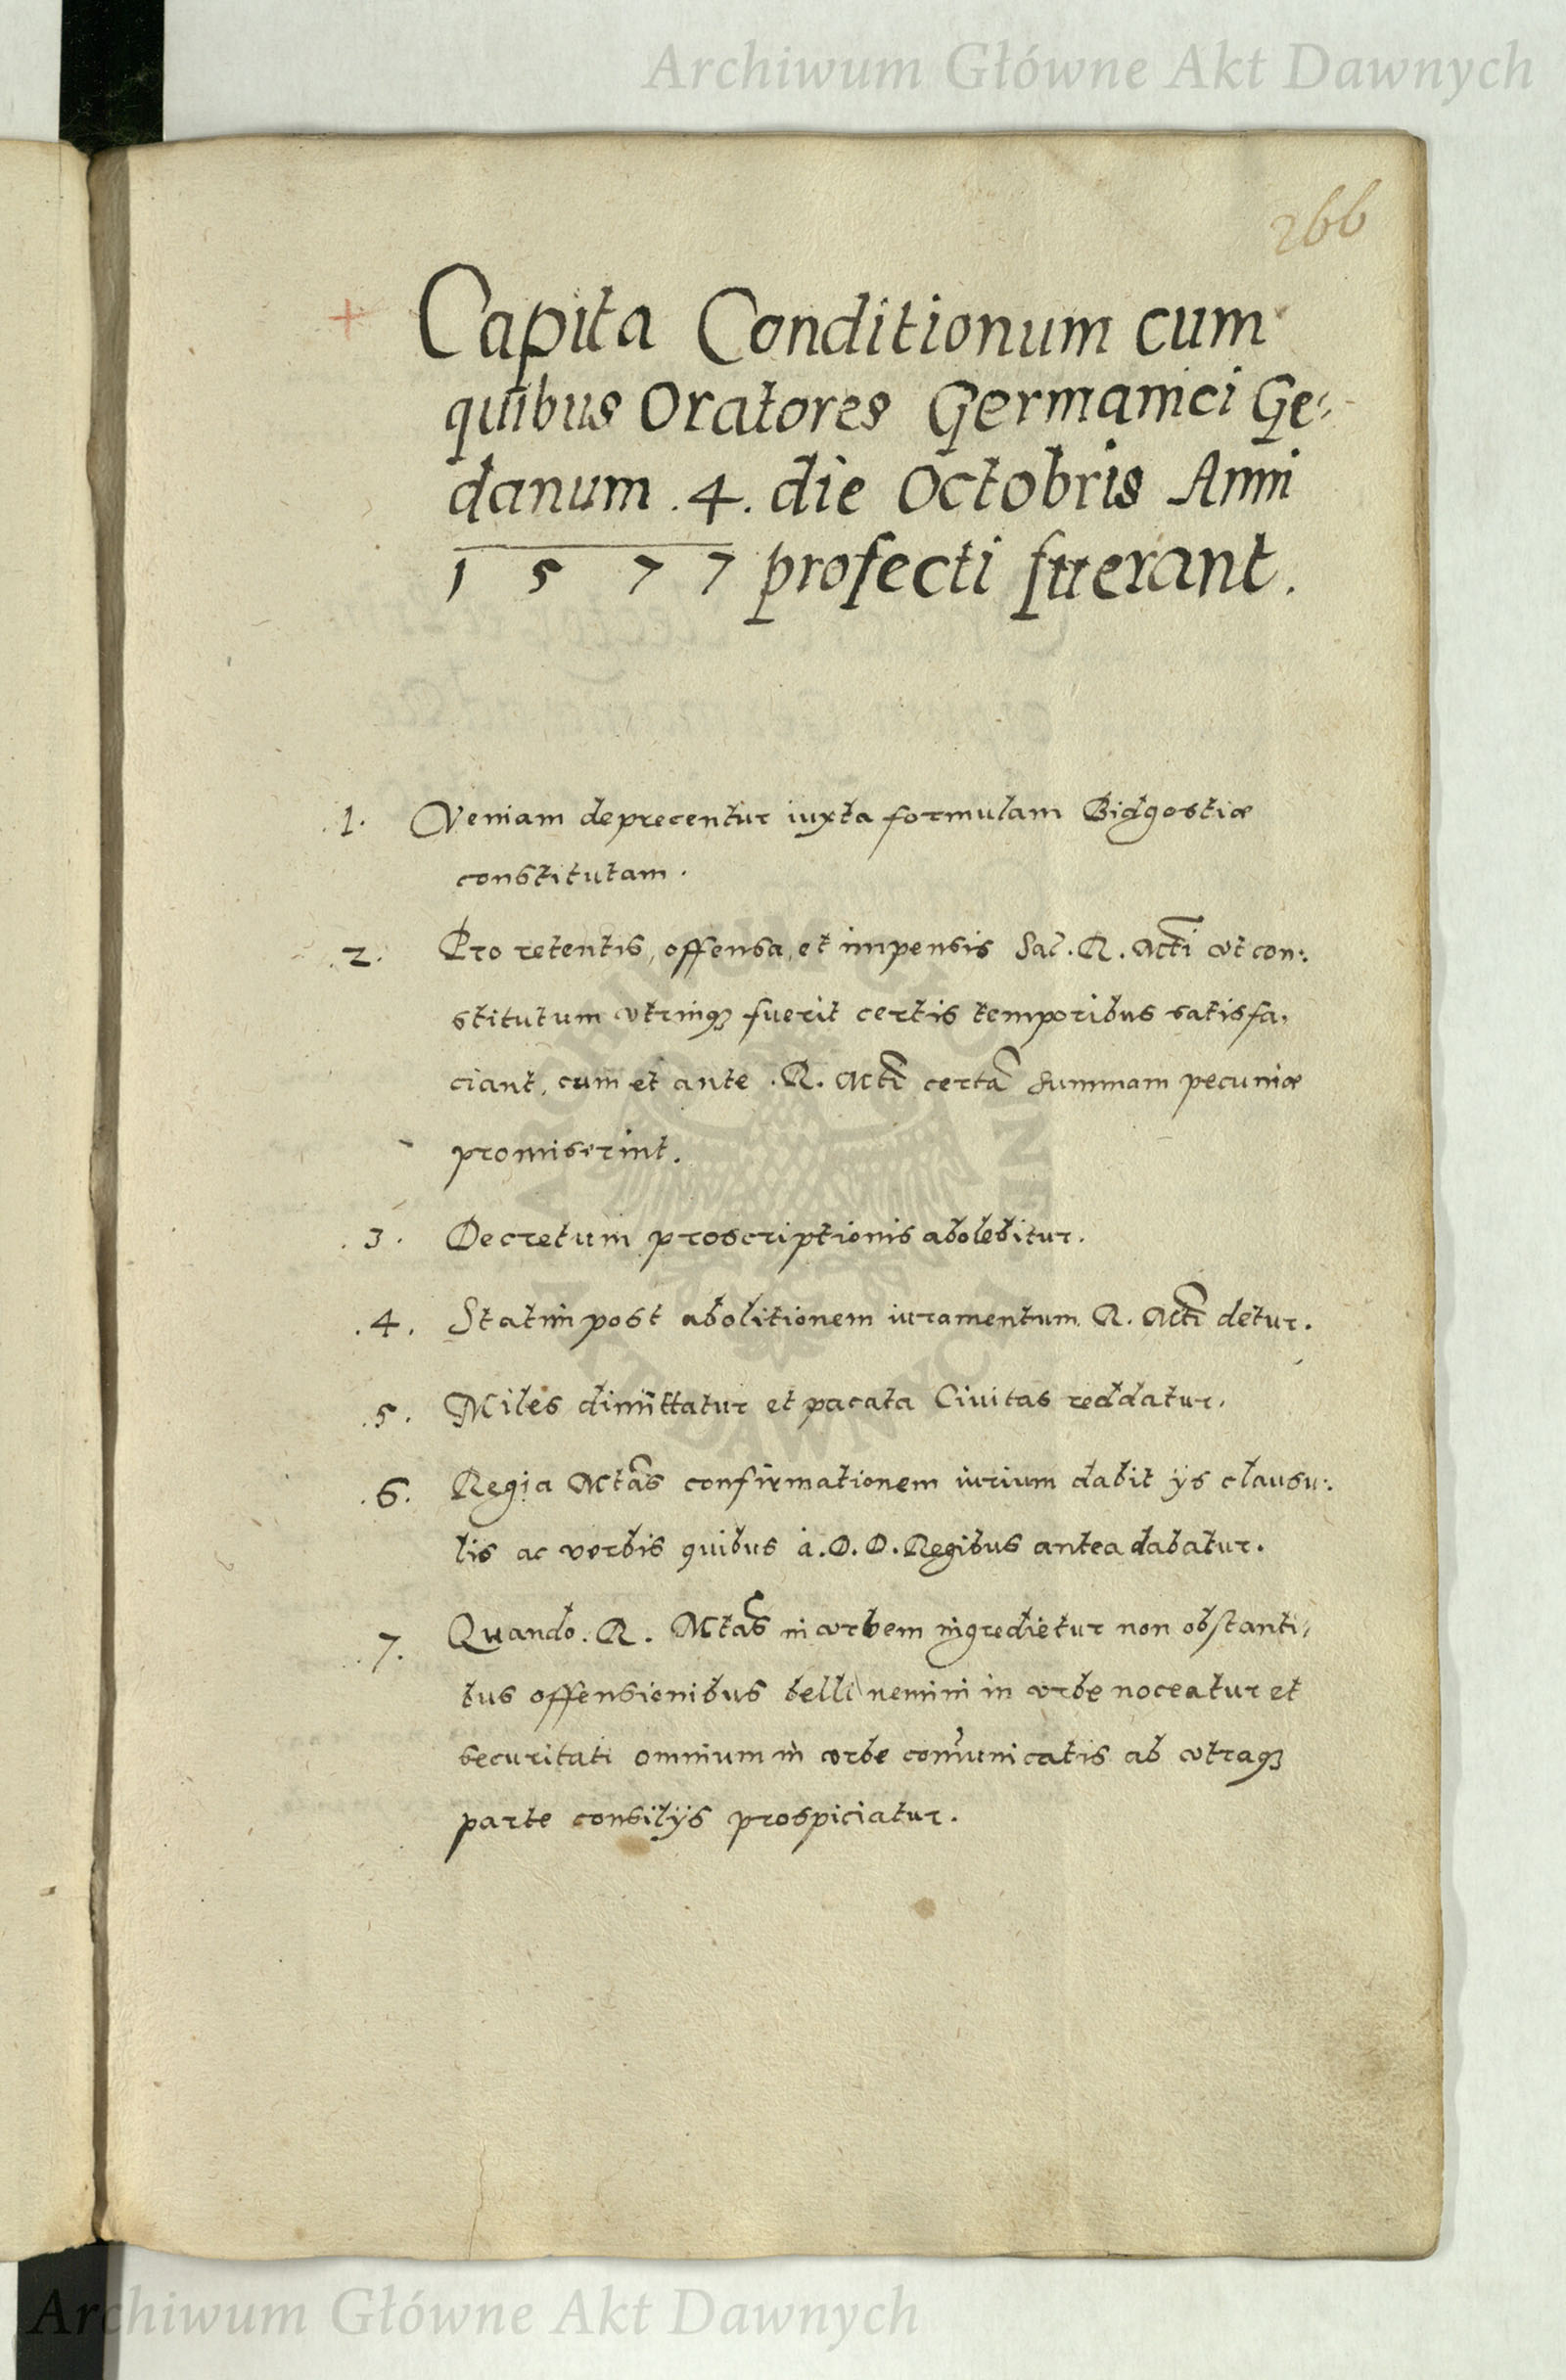 Archiwum Główne Akt Dawnych
266
Capita Conditionum cum
quibus Oratores Germanici Ge-
danum .4. die Octobris Anni
1577 profecti fuerant.
.1. Veniam deprecentur iuxta formulam Bidgostiæ
constitutam.
.2. Pro retentis, offensa, et impensis Sac. R. Mti vt con:
stitutum vtrinq3 fuerit certis temporibus satisfa,
ciant, cum et ante .R. Mti certã summam pecuniæ
promiserint.
.3. Decretum proscriptionis abolebitur.
.4. Statim post abolitionem iuramentum R. Mti detur.
.5. Miles dimittatur et pacata Ciuitas reddatur.
.6. Regia Mtas confirmationem iurium dabit ijs clausu:
lis ac verbis quibus à .D.D. Regibus antea dabatur.
.7. Quando .R. Mtas in vrbem ingredietur non obstanti,
bus offensionibus belli nemini in vrbe noceatur et
securitati omnium in vrbe comunicatis ab vtraq3
parte consilijs prospiciatur.
ARCHIWUM GŁÓWNE
AKT DAWNYCH
Archiwum Główne Akt Dawnych